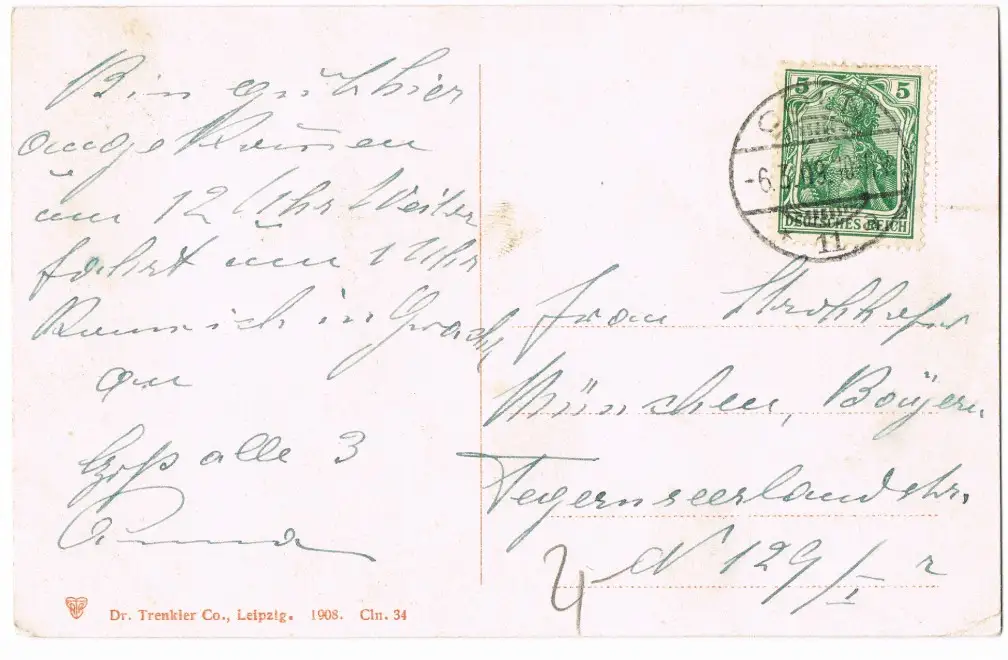 Bin gut hier
angekommen
um 12 Uhr Weiter
fahrt um 1 Uhr
Kamm ich in
an
alle 3
Anna
Dr. Trenkler Co., Leipzig. 1908. Cln. 34
5 5
DEUTSCHES REICH
-6.3.09. 10-11
11
Frau Strohhofer
München, Bayern.
Tegernseerlandstr.
N 129/I r
4